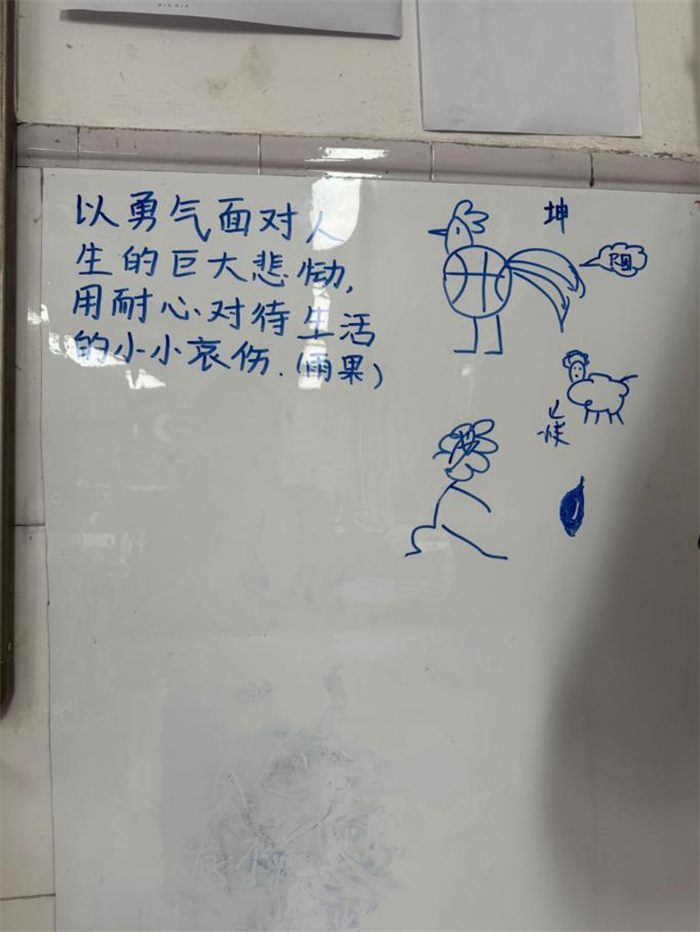 以勇气面对人
生的巨大悲恸,
用耐心对待生活
的小小哀伤.(雨果)
坤